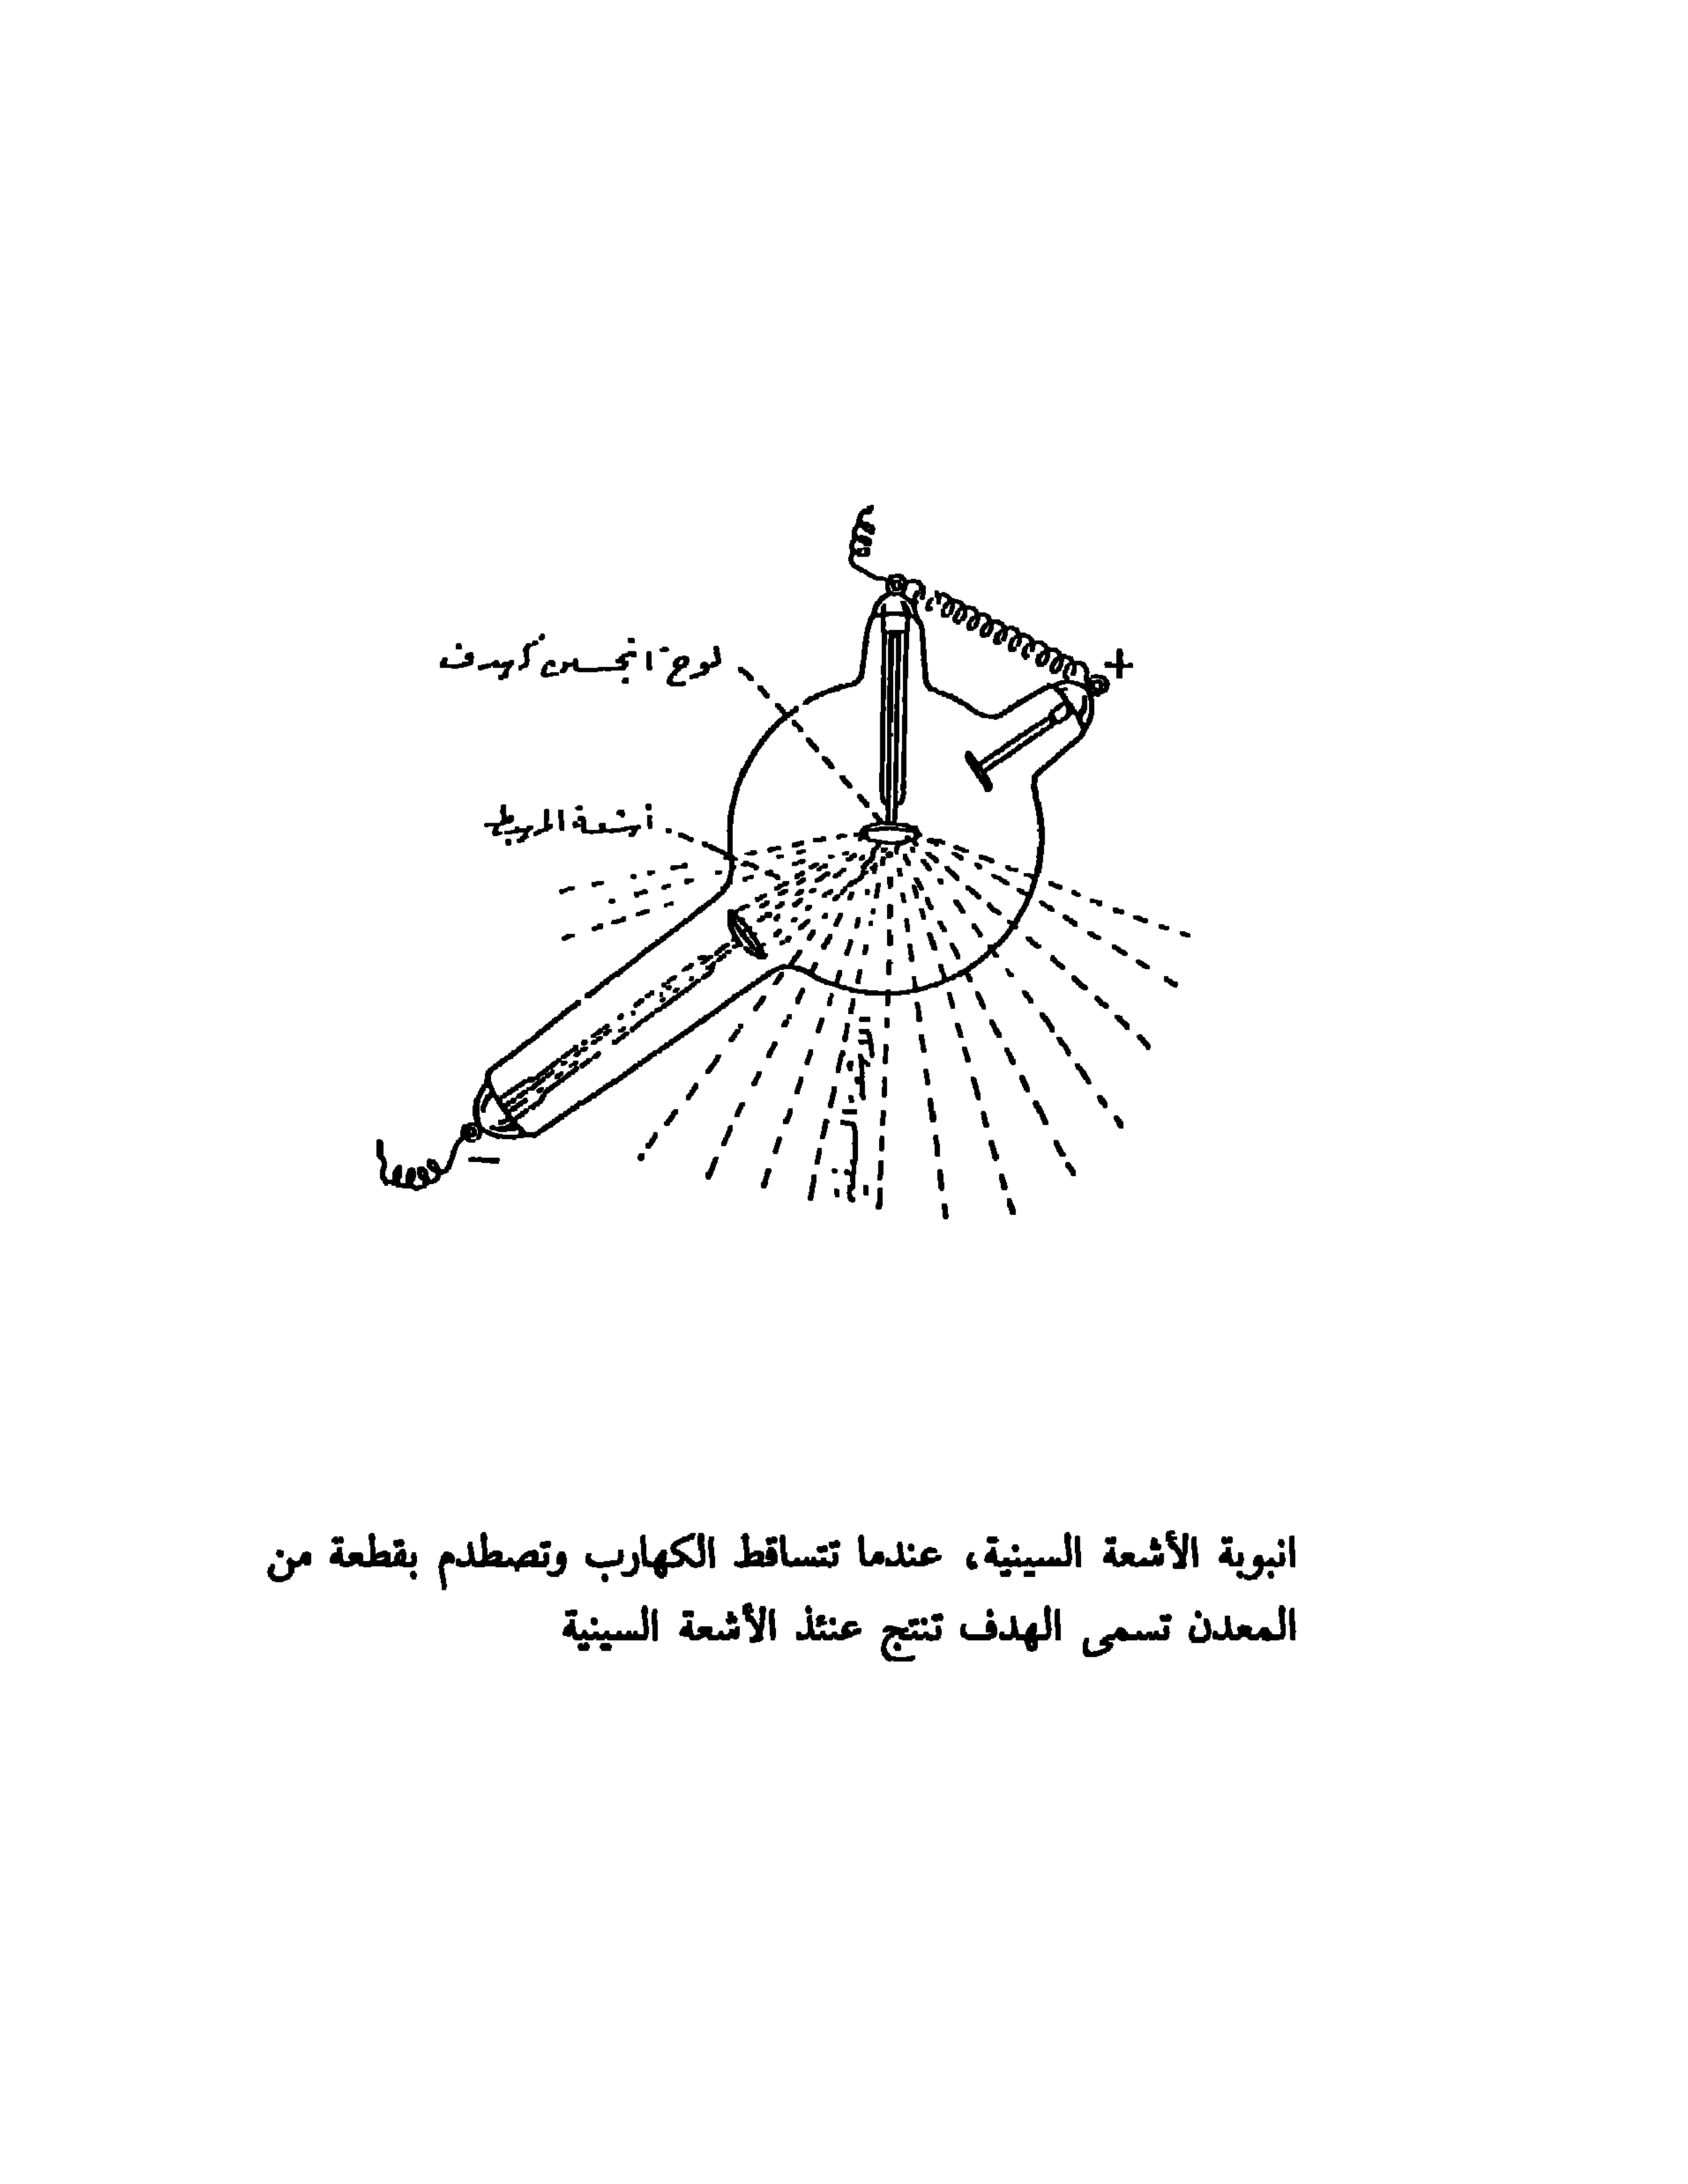 +
لوح تنجستن كهدف
أشعة المهبط
−
انبوبة الأشعة السينية، عندما تتساقط الكهارب وتصطدم بقطعة من
المعدن تسمى الهدف تنتج عنئذ الأشعة السينية